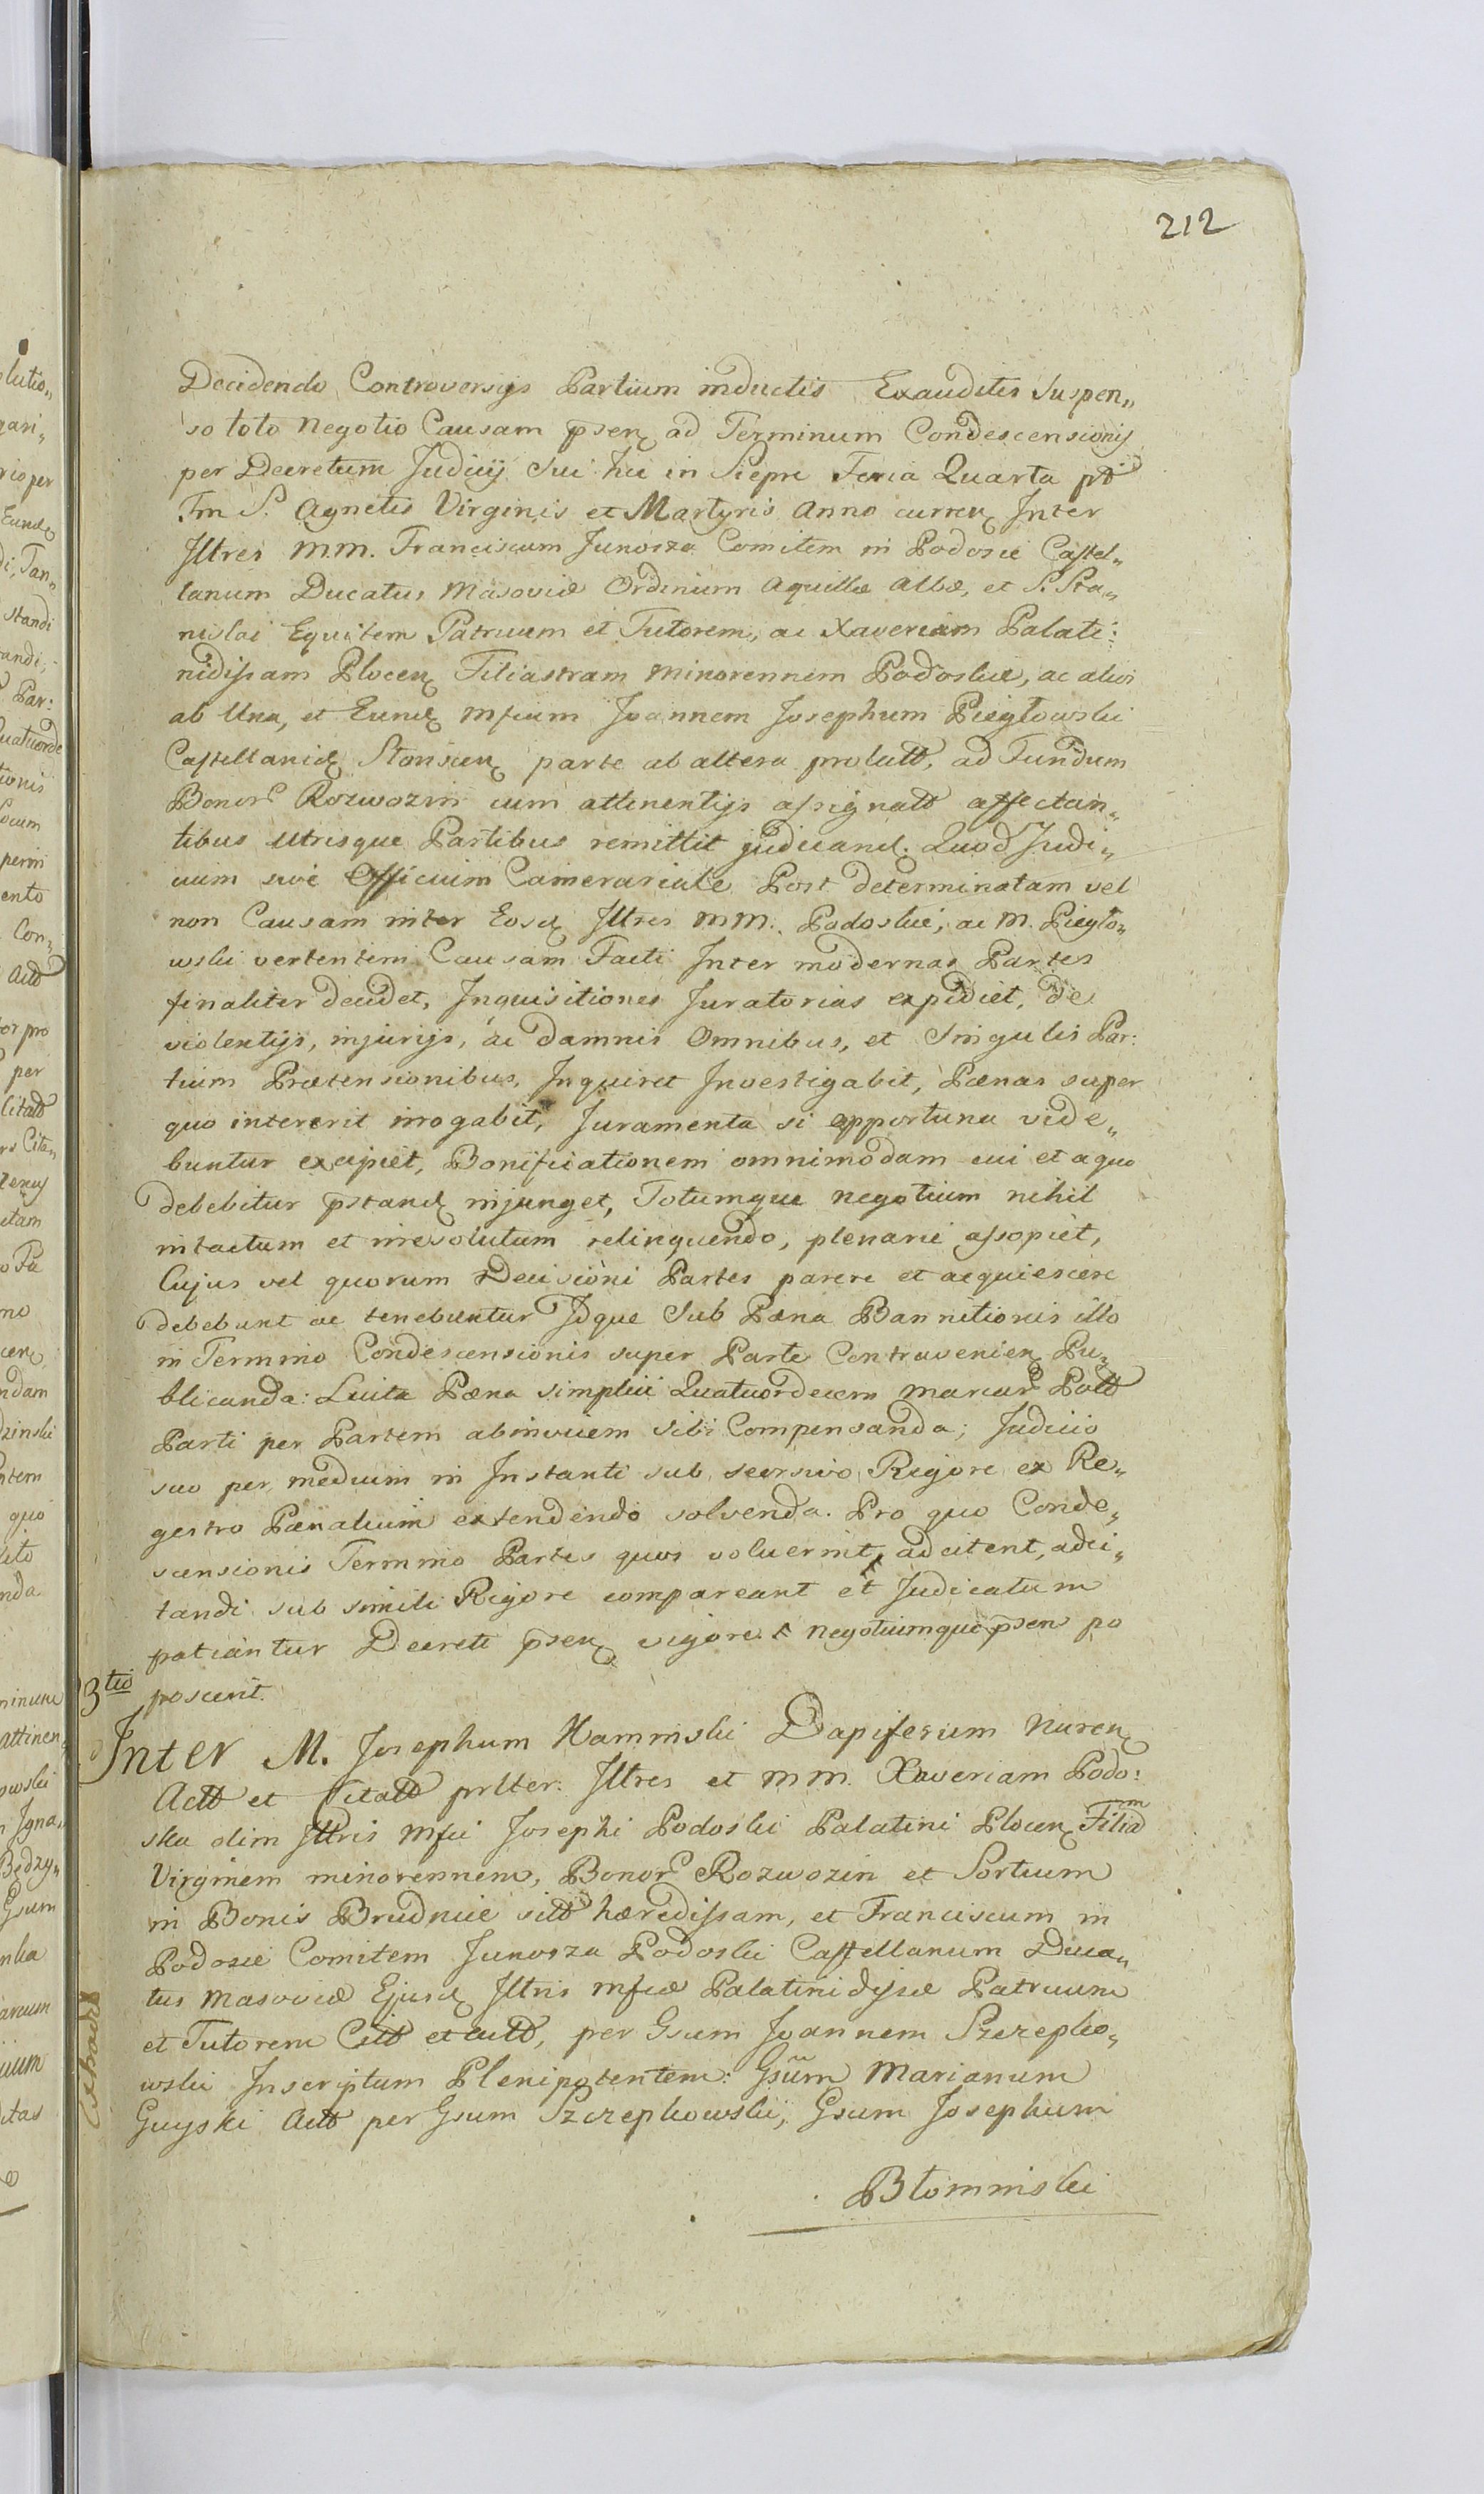 212
Decidendo Controversijs Partium inductis Exauditis Suspen„
so toto Negotio Causam pser ad Terminum Condescensionis
per Decretum Judicij Sui hic in Sierpc Feria Quarta pt
Fm S. Agnetis Virginis et Martyris Anno curren Inter
Illres M.M. Franciscum Junosza Comitem in Podosie Castel„
lanum Ducatus Masoviæ Ordinum Aquillæ Albæ, et S. Sta„
nislai Equitem Patruum et Tutorem, ac Xaveriam Palati:
nidissam Plocen Filiastram Minorennem Podoskie, ac alios
ab Una, et Eund Mficum Joannem Josephum Piegłowski
Castellanid Stonscen parte ab altera prolatt, ad Fundum
Bonor Rozwozin cum attinentijs assignatt affectan„
tibus Utrisque Partibus remittit judicand. Quod Judi„
cium sive Officium Camerariale Post determinatam vel
non Causam inter Eosd Illres MM. Podoskie, ac M. Piegło„
wski vertentem Causam Facti Inter modernas Partes
finaliter decidet, Inquisitiones Juratorias expediet, de
violentijs, injurijs, ac damnis Omnibus, et Singulis Par:
tium Prætensionibus, Inquiret Investigabit, Pænas super
quo intererit irrogabit, Juramenta si opportuna vide„
buntur excipiet, Bonificationem omnimodam cui et a quo
debebitur pstand injunget, Totumque negotium nihil
intactum et irresolutum relinquendo, plenarie assopiet,
Cujus vel quorum Decisioni Partes parere et acquiescere
debebunt ac tenebuntur Idque Sub Pæna Bannitionis illo
in Termino Condescensionis super Parte Contravenien Pu„
blicanda: Luita Pæna simplici Quatuordecem Marcar Poll
Parti per Partem abinvicem sibi Compensanda; Judicio
suo per medium in Instanti sub seorsivo Rigore ex Re„
gestro Pænalium extendendo solvenda. Pro quo Conde„
scensionis Termino Partes quos voluerint, adcitent, adci„
tandi sub simili Rigore compareant et Judicatum
patiantur Decreti psen vigore negotiumque psen po
poscerit.
3tio
Inter M. Josephum Kaminski Dapiferum Nuren
Actt et Citatt prlter: Illres et MM. Xaveriam Podo:
ska olim Illris Mfici Josephi Podoski Palatini Plocen Filiam
Virginem minorennem, Bonor Rozwozin et Sortium
in Bonis Brudnice sitt hæredissam, et Franciscum in
Podosie Comitem Junosza Podoski Castellanum Duca„
tus Masoviæ Ejusd Illris Mficæ Palatinidissæ Patruum
et Tutorem Citt et Actt, per Gsum Joannem Szczepko„
wski Inscriptum Plenipotentem: Gsum Marianum
Guyski Actt per Gsum Szczepkowski, Gsum Josephum
Błominski